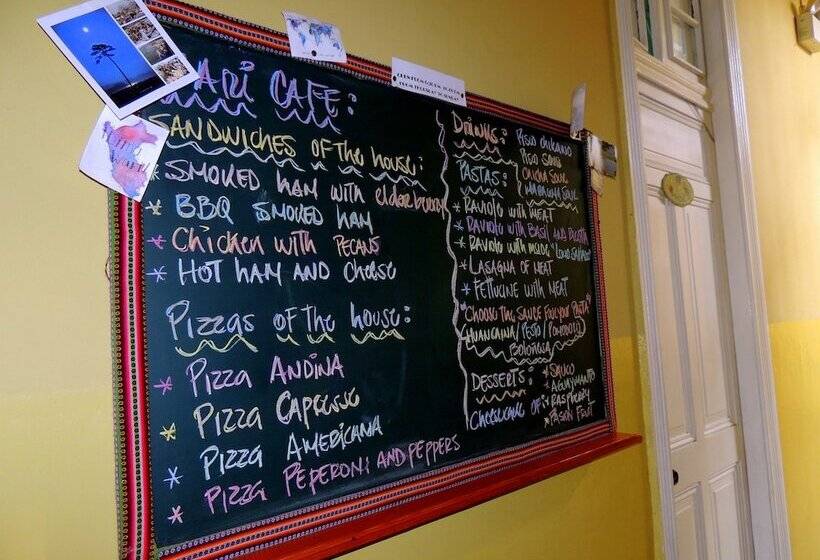 ARI CAFE:
SANDWICHES OF THE HOUSE:
* SMOKED HAM WITH elderberry
* BBQ SMOKED HAM
* Chicken WITH PECANS
* HOT HAM AND Cheese
Pizzas OF THE HOUSE:
* Pizza ANDINA
* Pizza CAPRESSE
* Pizza AMERICANA
* PIZZA PEPERONI AND PEPPERS
DRINKS:
PISCO Chilcano
PISCO SOUR
CHICHA SOUR
MARACUYA SOUR
PASTAS:
* RAVIOLE WITH MEAT
* RAVIOLE WITH BASIL AND RICOTTA
* RAVIOLE WITH
* LASAGNA OF MEAT
* FETTUCINE WITH MEAT
"Choose THE SAUCE FOR YOUR PASTA"
HUANCAINA/PESTO/POMODORO/
Boloñesa
DESSERTS:
Cheesecake OF:
* SAUCO
* AGUAYMANTO
* RASPBERRY
* PASSION FRUIT